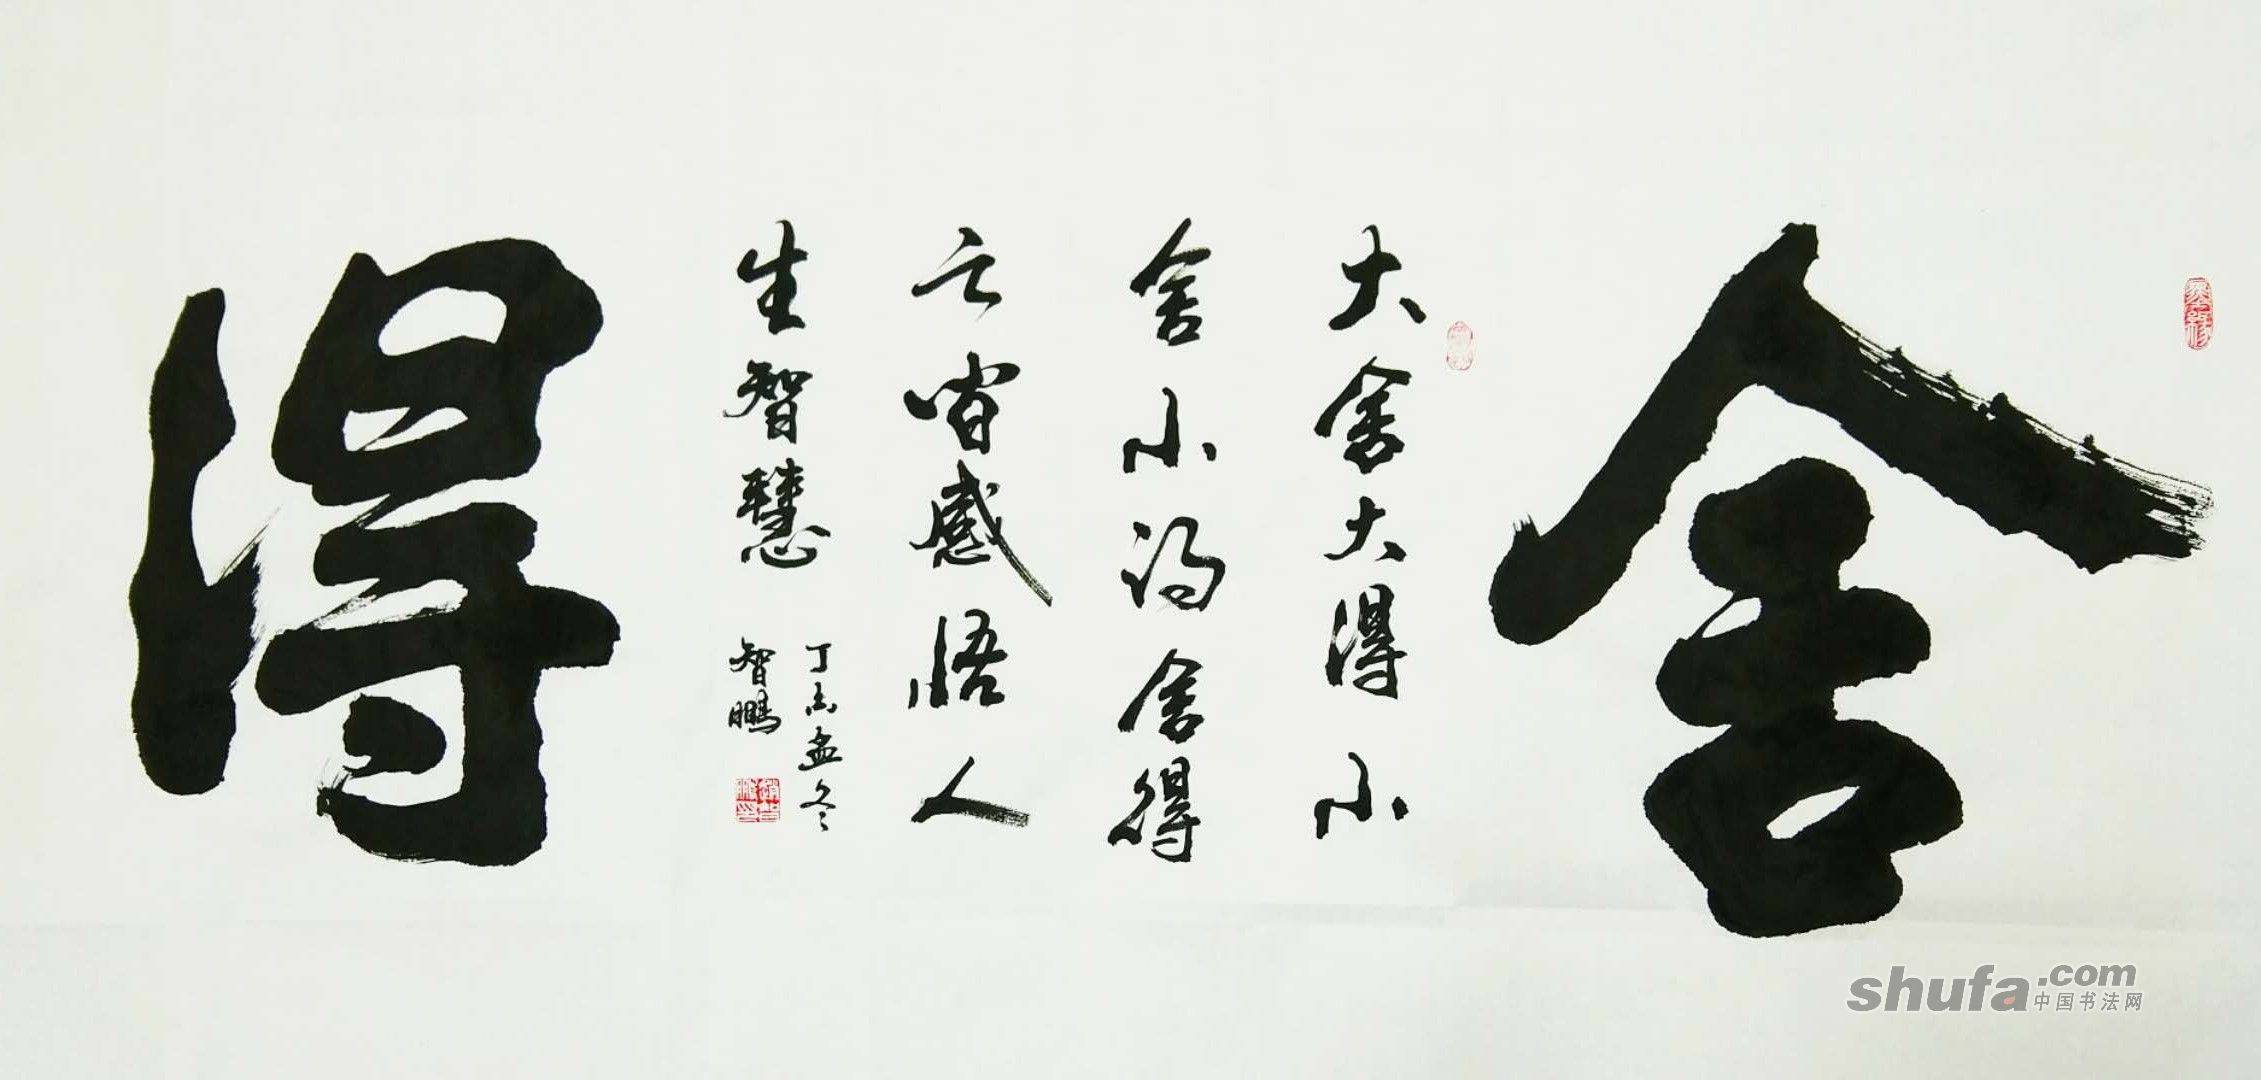 舍
大舍大得小
舍小得舍得
之间感悟人
生智慧
丁酉孟冬
智鹏
得
shufa.com
中国书法网